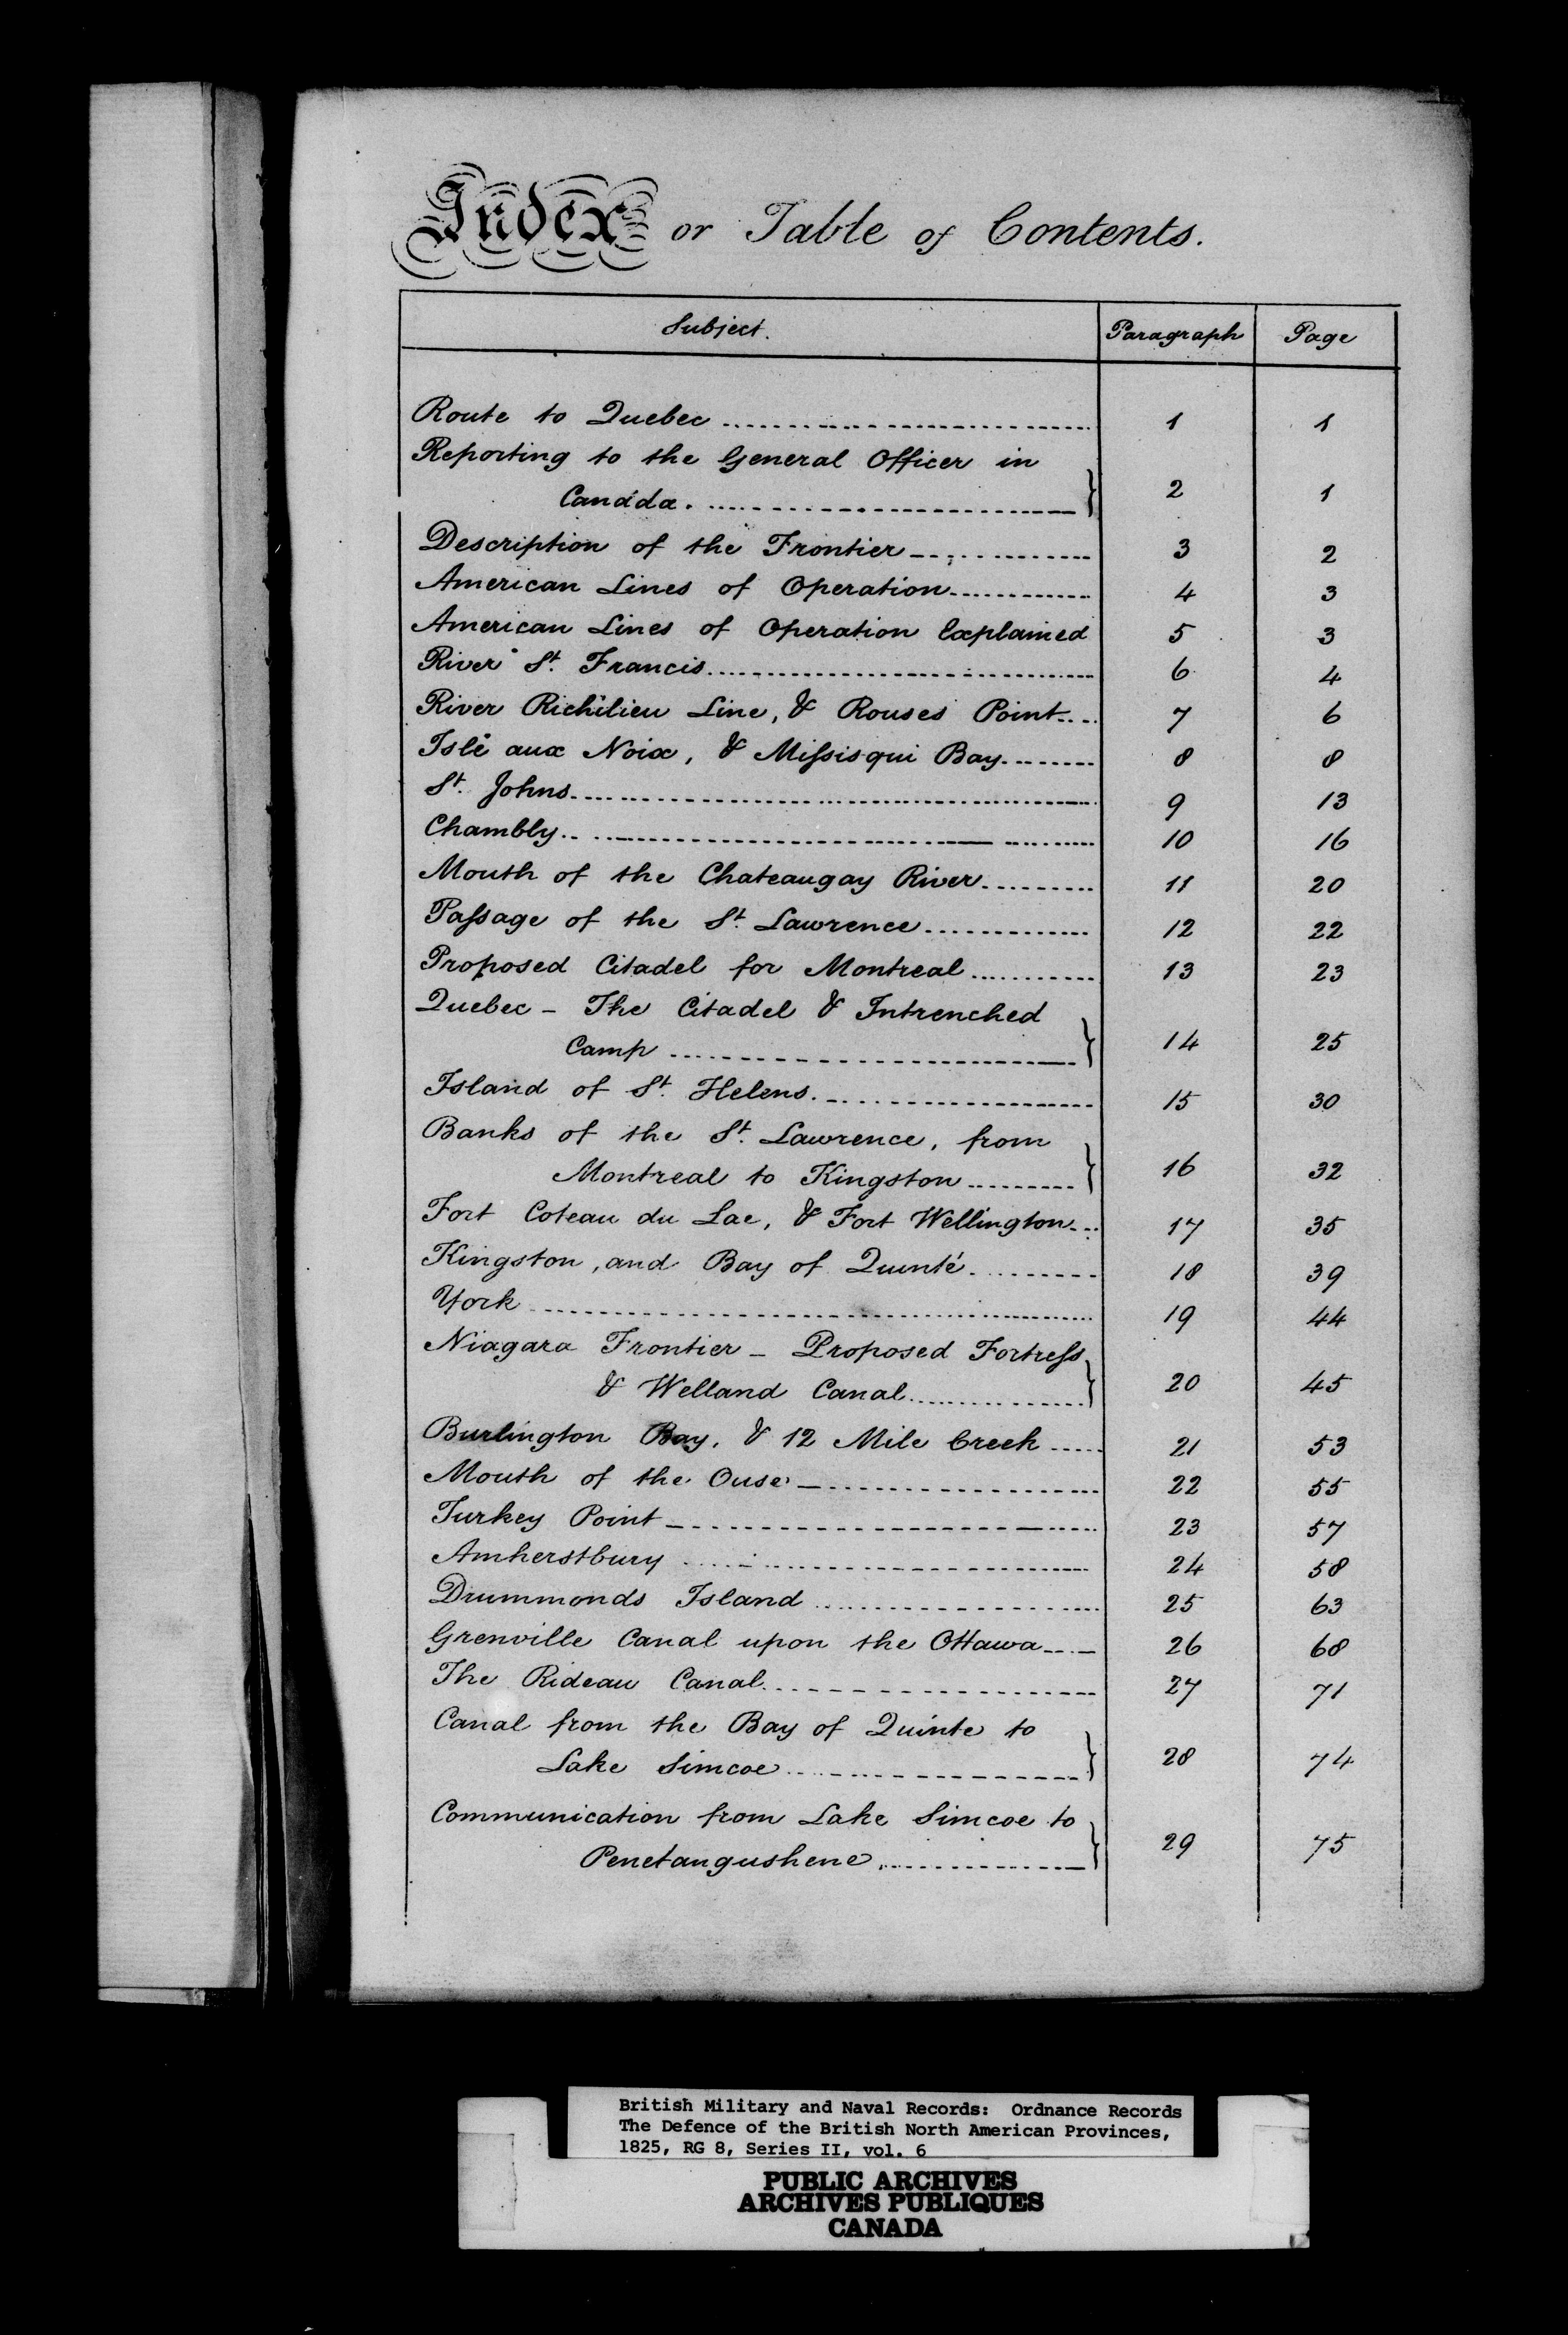 Index or Table of Contents.
Subject. Paragraph Page
Route to Quebec 1 1
Reporting to the General Officer in
Canada. 2 1
Description of the Frontier 3 2
American Lines of Operation 4 3
American Lines of Operation Explained 5 3
River St. Francis 6 4
River Richilieu Line, & Rouses Point 7 6
Isle aux Noix, & Missisqui Bay 8 8
St. Johns 9 13
Chambly 10 16
Mouth of the Chateaugay River 11 20
Passage of the St. Lawrence 12 22
Proposed Citadel for Montreal 13 23
Quebec - The Citadel & Intrenched
Camp 14 25
Island of St. Helens. 15 30
Banks of the St. Lawrence, from
Montreal to Kingston 16 32
Fort Coteau du Lac, & Fort Wellington 17 35
Kingston, and Bay of Quinté 18 39
York 19 44
Niagara Frontier - Proposed Fortress
& Welland Canal 20 45
Burlington Bay, & 12 Mile Creek 21 53
Mouth of the Ouse 22 55
Turkey Point 23 57
Amherstbury 24 58
Drummonds Island 25 63
Grenville Canal upon the Ottawa 26 68
The Rideau Canal 27 71
Canal from the Bay of Quinte to
Lake Simcoe 28 74
Communication from Lake Simcoe to
Penetangushene 29 75
British Military and Naval Records: Ordnance Records
The Defence of the British North American Provinces,
1825, RG 8, Series II, vol. 6
PUBLIC ARCHIVES
ARCHIVES PUBLIQUES
CANADA